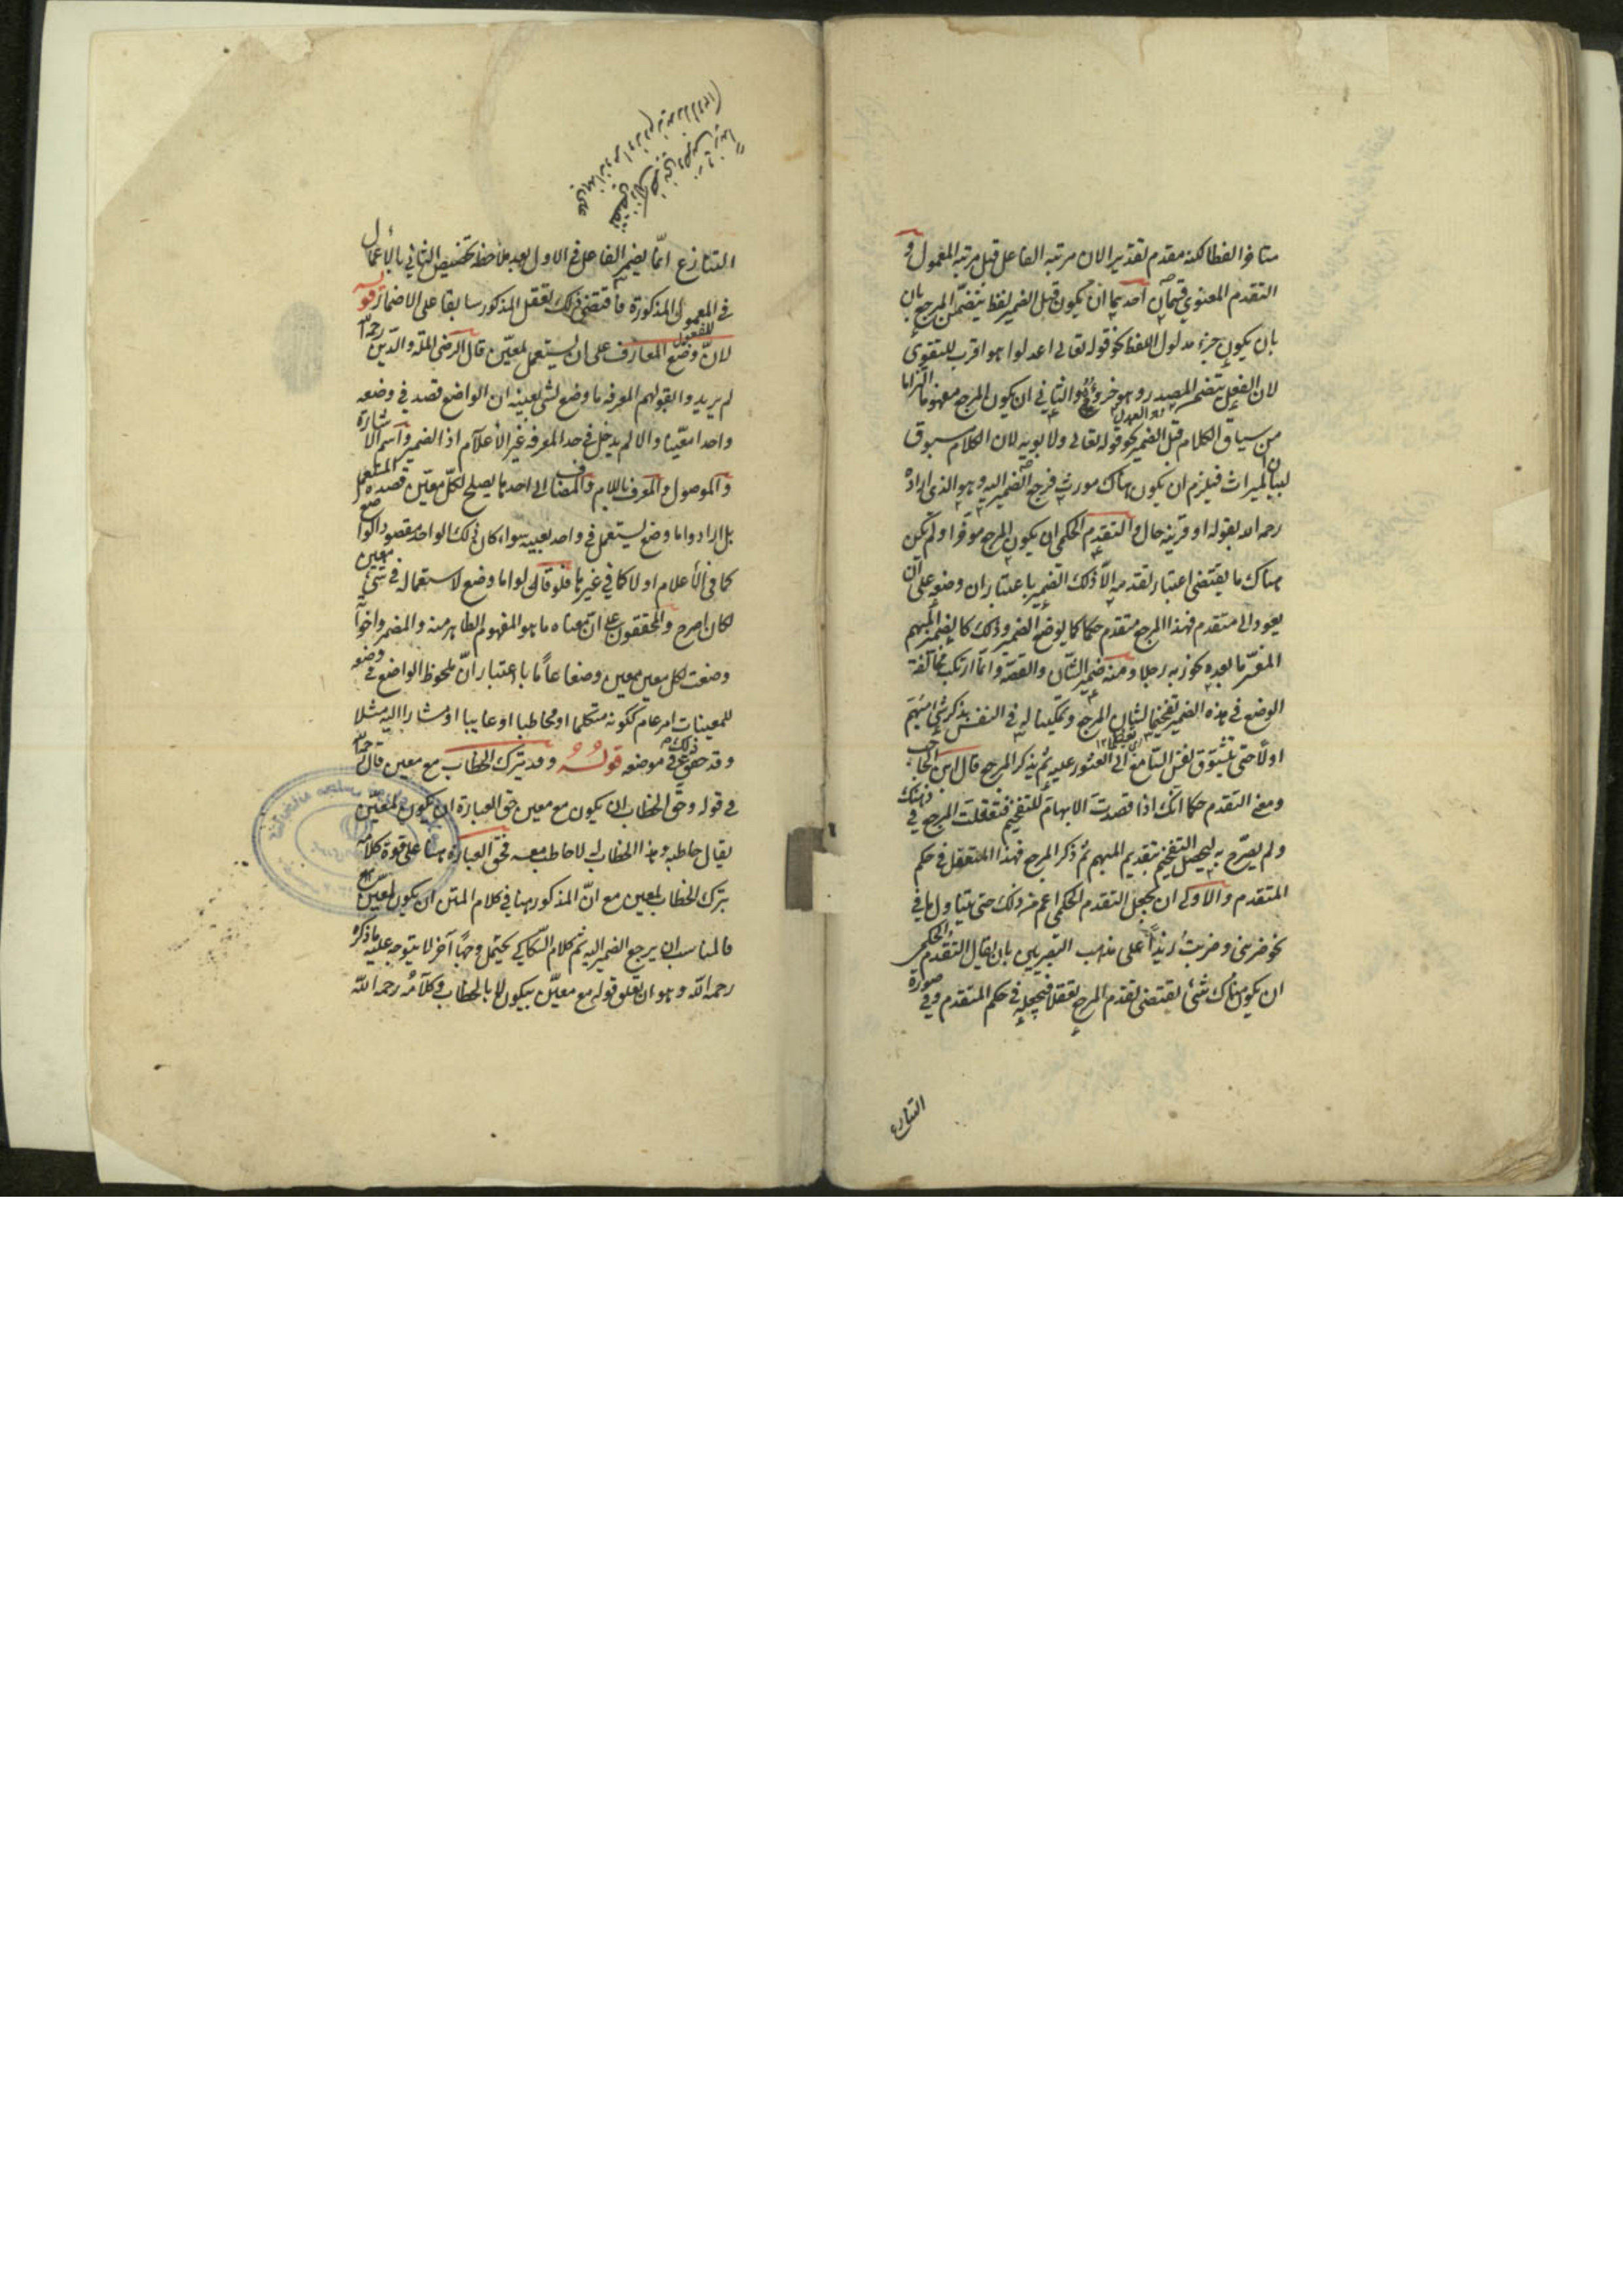 متأخرا لفظا لكنه مقدم تقديرا لان مرتبة الفاعل قبل مرتبة المفعول و
التقدم المعنوي قسمان احدهما ان يكون قبل الضمير لفظ يتضمن المرجع بان
بان يكون جزء مدلول اللفظ نحو قوله تعالى اعدلوا هو اقرب للتقوى
لان الفعل يتضمن المصدر وهو جزؤه والثاني ان يكون المرجع مفهوما التزاما
من سياق الكلام قبل الضمير نحو قوله تعالى ولابويه لان الكلام مسوق
لبيان الميراث فيلزم ان يكون هناك مورث فرجع الضمير اليه وهو الذي اراده
رحمه الله بقوله او قرينة حال والتقدم الحكمي ان يكون المرجع مؤخرا ولم يكن
هناك ما يقتضي اعتبار تقدمه الا ذلك الضمير باعتبار ان وضعه على ان
يعود الى متقدم فهذا المرجع متقدم حكما كما يوضع الضمير وذلك كالضمير المبهم
المفسر ما بعده نحو ربه رجلا ومنه ضمير الشان والقصة وانما ارتكب مخالفة
الوضع في هذه الضمير تفخيما لشان المرجع وتمكينا له في النفس بذكر شيء مبهم
اولا حتى يتشوق نفس السامع الى العثور عليه ثم يذكر المرجع قال ابن الحاجب
ومعنى التقدم حكما انك اذا قصدت الابهام للتفخيم فتعقلت المرجع في ذهنك
ولم يصرح به ليحصل التفخيم بتقديم المبهم ثم ذكر المرجع فهذا المتعقل في حكم
المتقدم والاولى ان يجعل التقدم الحكمي اعم من ذلك حتى يتناول ما في
نحو ضربني وضربت زيدا على مذهب البصريين بان يقال التقدم الحكمي
ان يكون هناك شيء يقتضي تقدم المرجع تعقلا فيجعله في حكم المتقدم وفي صورة
التنازع
التنازع انما يضمر الفاعل في الاول بعد ملاحظة تخصيص الثاني بالأعمال
في المعمول المذكورة فاقتضى ذلك تعقل المذكور سابقا على الاضمار قوله
لان وضع المعارف على ان يستعمل لمعين قال الرضي الملة والدين رحمه الله
لم يريدوا بقولهم المعرفة ما وضع لشيء بعينه ان الواضع قصد في وضعه
واحدا معينا والا لم يدخل في حد المعرفة غير الأعلام اذ الضمير واسم الاشارة
والموصول والمعرف باللام والمضاف الى احدها يصلح لكل معين قصده المستعمل
بل ارادوا ما وضع ليستعمل في واحد بعينه سواء كان ذلك الواحد مقصود الواضع
كما في الأعلام او لا كما في غيرها فلو قالوا ما وضع لاستعماله في شيء معين
لكان اصرح والمحققون على ان معناه ما هو المفهوم الظاهر منه والمضمر واخواته
وضعت لكل معين معين وضعا عاما باعتبار ان ملحوظ الواضع في وضعه
للمعينات امر عام ككونه متكلما او مخاطبا او غايبا او مشارا اليه مثلا
وقد حقق ذلك في موضعه قوله وقد يترك الخطاب مع معين قال رحمه الله
في قوله وحق الخطاب ان يكون مع معين حق العبارة ان يكون لمعين
يقال خاطبه وهذا الخطاب له لا خاطب معه فحق العبارة هنا على قوة كلامه
بترك الخطاب لمعين مع ان المذكور هنا في كلام المتن ان يكون لمعين
فالمناسب ان يرجع الضمير اليه ثم كلام السكاكي يحتمل وجها آخر لا يتوجه عليه ما ذكره
رحمه الله وهو ان تعلق قوله مع معين بيكون لا بالخطاب وكلامه رحمه الله